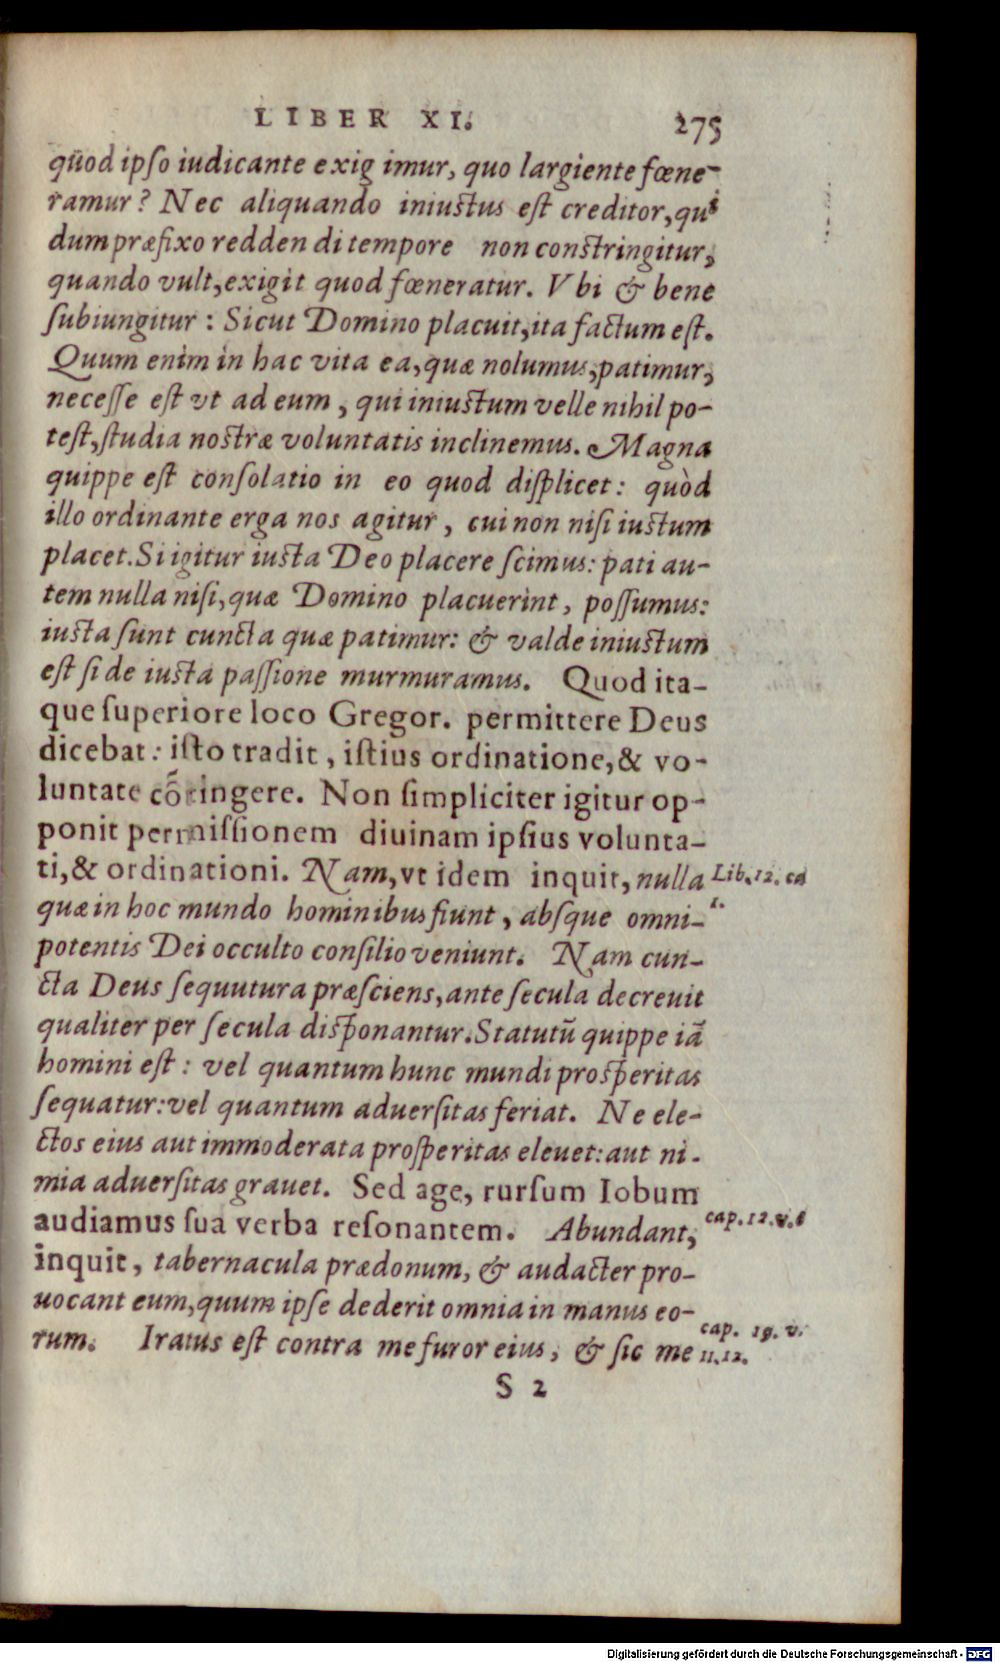 LIBER XI. 275
quod ipſo iudicante exig imur, quo largiente fœne-
ramur? Nec aliquando iniuſtus eſt creditor, qui
dum præfixo reddendi tempore non conſtringitur,
quando vult, exigit quod fœneratur. Vbi & bene
ſubiungitur: Sicut Domino placuit, ita factum eſt.
Quum enim in hac vita ea, quæ nolumus, patimur,
neceſſe eſt vt ad eum, qui iniuſtum velle nihil po-
teſt, ſtudia noſtræ voluntatis inclinemus. Magna
quippe eſt conſolatio in eo quod diſplicet: quòd
illo ordinante erga nos agitur, cui non niſi iuſtum
placet. Si igitur iuſta Deo placere ſcimus: pati au-
tem nulla niſi, quæ Domino placuerint, poſſumus:
iuſta ſunt cuncta quæ patimur: & valde iniuſtum
eſt ſi de iuſta paſſione murmuramus. Quod ita-
que ſuperiore loco Gregor. permittere Deus
dicebat: iſto tradit, iſtius ordinatione, & vo-
luntate cõtingere. Non ſimpliciter igitur op-
ponit permiſſionem diuinam ipſius volunta-
ti, & ordinationi. Nam, vt idem inquit, nulla Lib. 12. ca
quæ in hoc mundo hominibus fiunt, abſque omni- 1.
potentis Dei occulto conſilio veniunt. Nam cun-
cta Deus ſequutura præſciens, ante ſecula decreuit
qualiter per ſecula diſponantur. Statutũ quippe iã
homini eſt: vel quantum hunc mundi proſperitas
ſequatur: vel quantum aduerſitas feriat. Ne ele-
ctos eius aut immoderata proſperitas eleuet: aut ni-
mia aduerſitas grauet. Sed age, rurſum Iobum
audiamus ſua verba reſonantem. Abundant, cap. 12. v. 6
inquit, tabernacula prædonum, & audacter pro-
uocant eum, quum ipſe dederit omnia in manus eo-
rum. Iratus eſt contra me furor eius, & ſic me cap. 19. v.
11. 12.
S 2
Digitalisierung gefördert durch die Deutsche Forschungsgemeinschaft - DFG